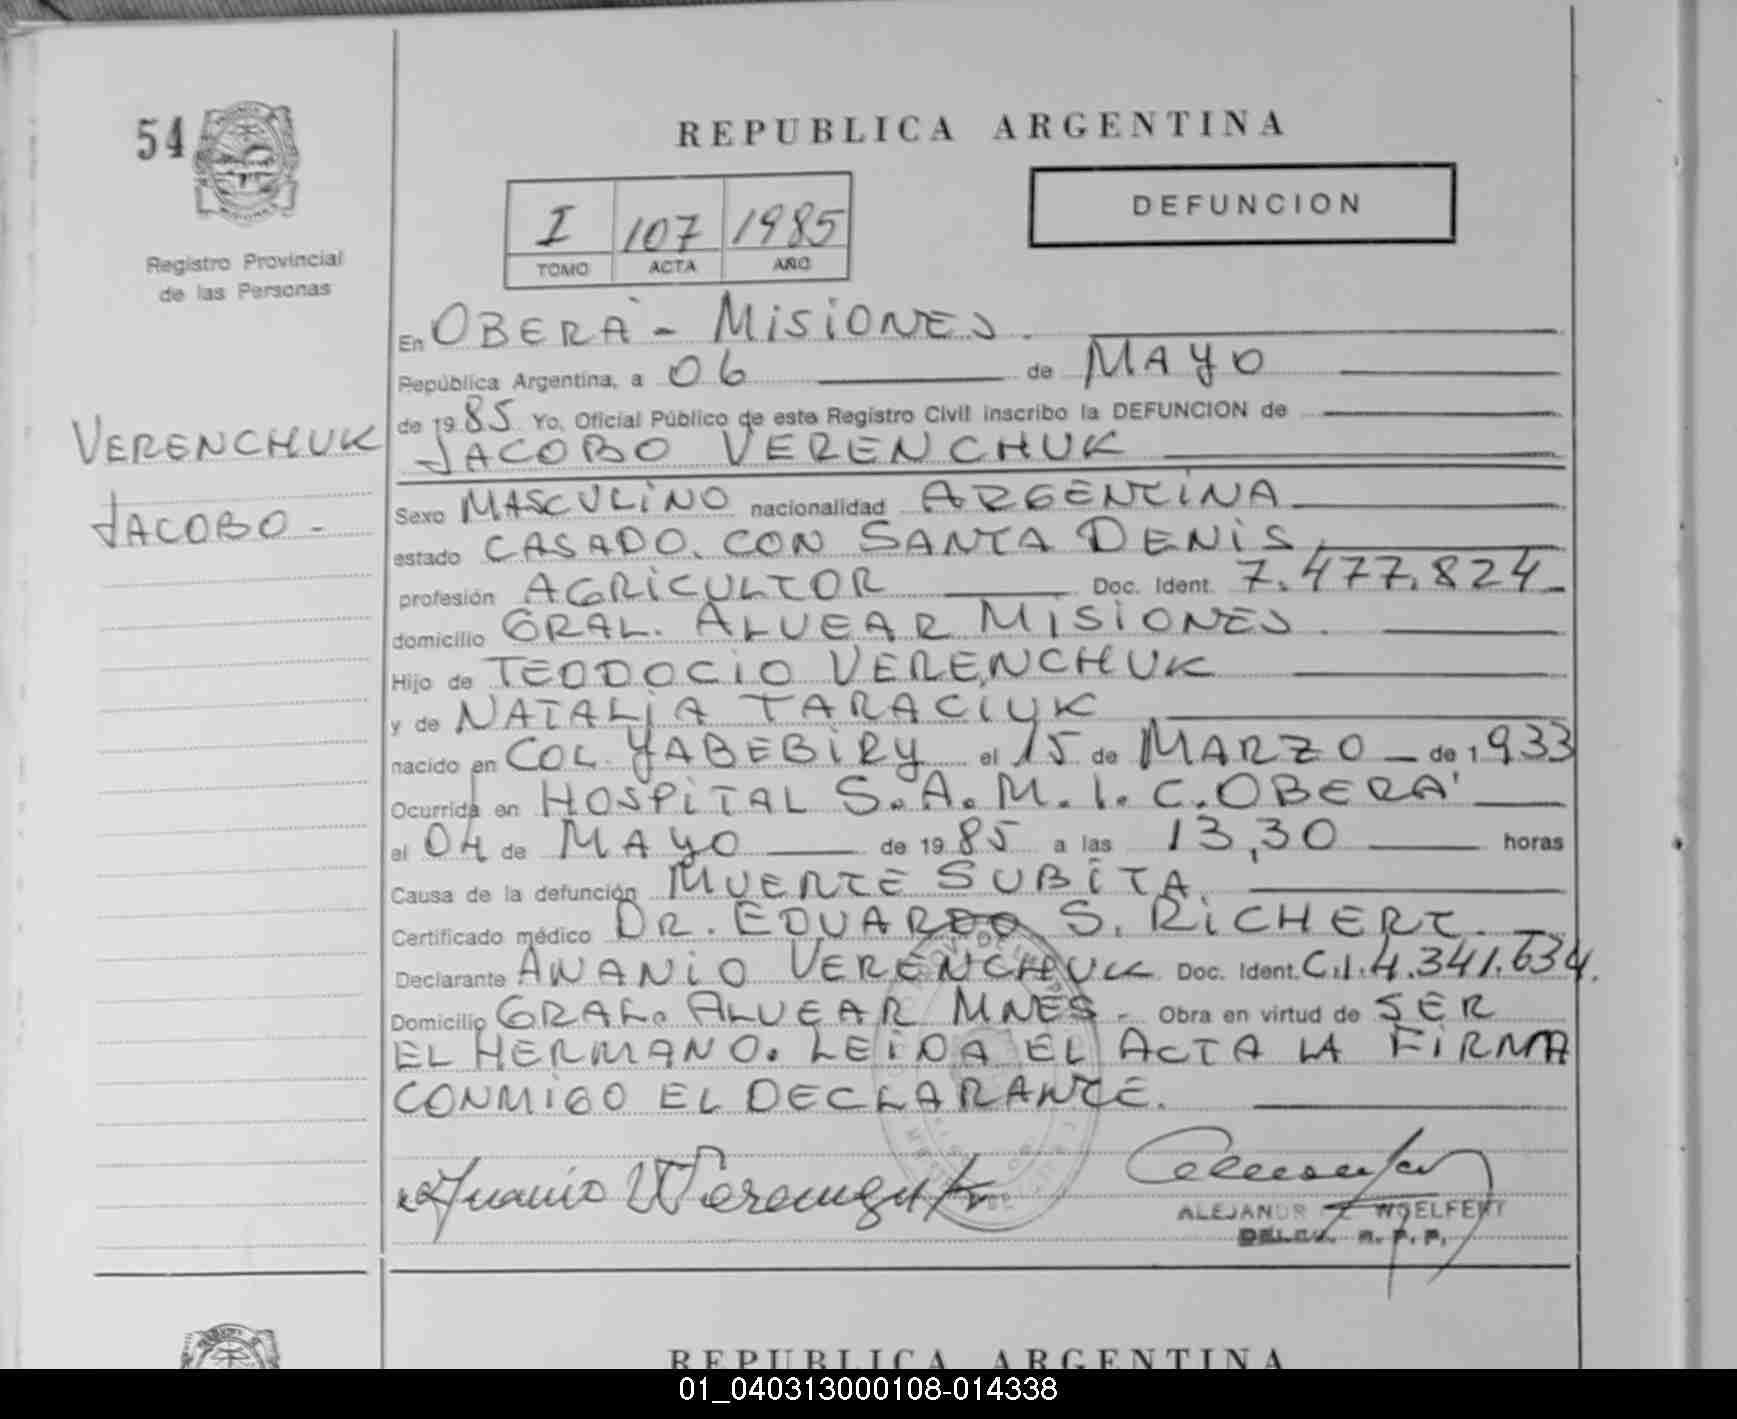 54
Registro Provincial
de las Personas
VERENCHUK
JACOBO -
REPUBLICA ARGENTINA
DEFUNCION
I 107 1985
TOMO ACTA AÑO
En OBERÁ - MISIONES.
República Argentina, a 06 de MAYO
de 1985 Yo, Oficial Público de este Registro Civil inscribo la DEFUNCION de
JACOBO VERENCHUK
Sexo MASCULINO nacionalidad ARGENTINA
estado CASADO. CON SANTA DENIS
profesión AGRICULTOR Doc. Ident. 7.477.824
domicilio GRAL. ALVEAR MISIONES.
Hijo de TEODOCIO VERENCHUK
y de NATALIA TARACIUK
nacido en COL. YABEBIRY el 15 de MARZO de 1933
Ocurrida en HOSPITAL S.A.M.I.C. OBERÁ
el 04 de MAYO de 1985 a las 13,30 horas
Causa de la defunción MUERTE SUBITA
Certificado médico DR. EDUARDO S. RICHERT.
Declarante ANANIO VERENCHUK Doc. Ident. C.I. 4.341.634.
Domicilio GRAL. ALVEAR MNES. Obra en virtud de SER
EL HERMANO. LEIDA EL ACTA LA FIRMA
CONMIGO EL DECLARANTE.
ALEJANDR WOELFERT
DELEG. R. P. P.
REPUBLICA ARGENTINA
01_040313000108-014338